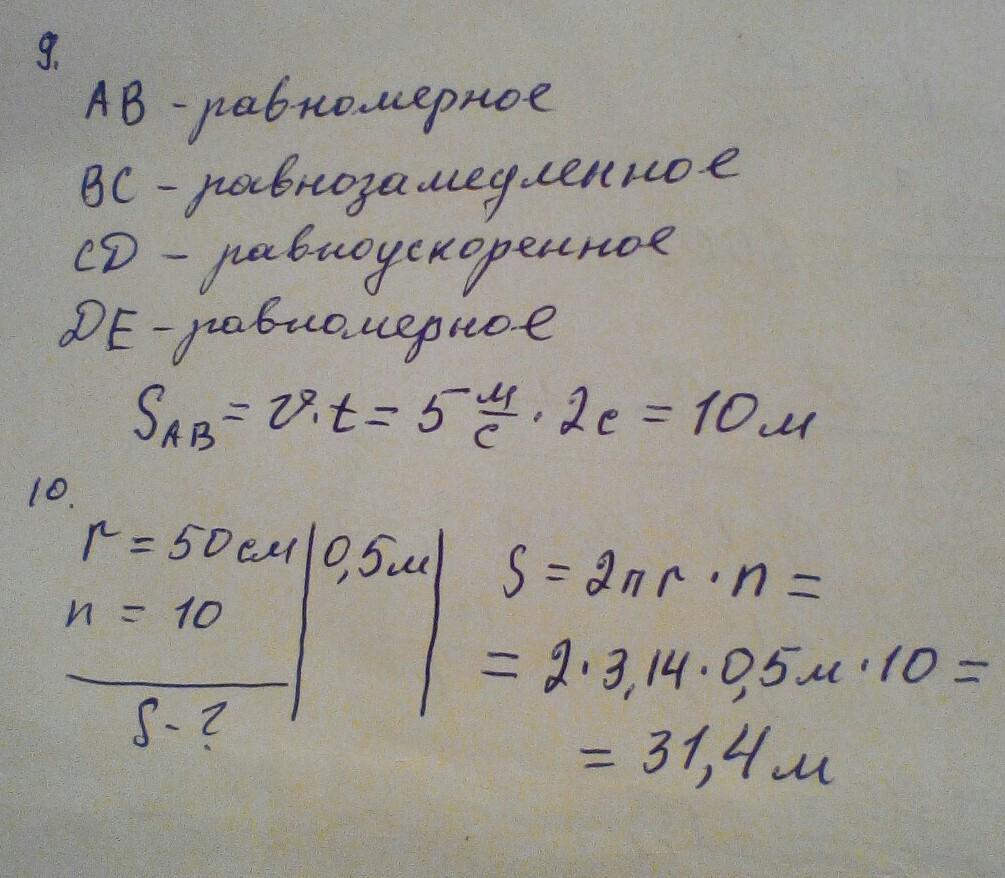 9.
AB - равномерное
BC - равнозамедленное
CD - равноускоренное
DE - равномерное
S_AB = υ·t = 5 м/с · 2с = 10 м
10.
r = 50 см | 0,5 м |
n = 10
S - ?
S = 2πr · n =
= 2 · 3,14 · 0,5 м · 10 =
= 31,4 м